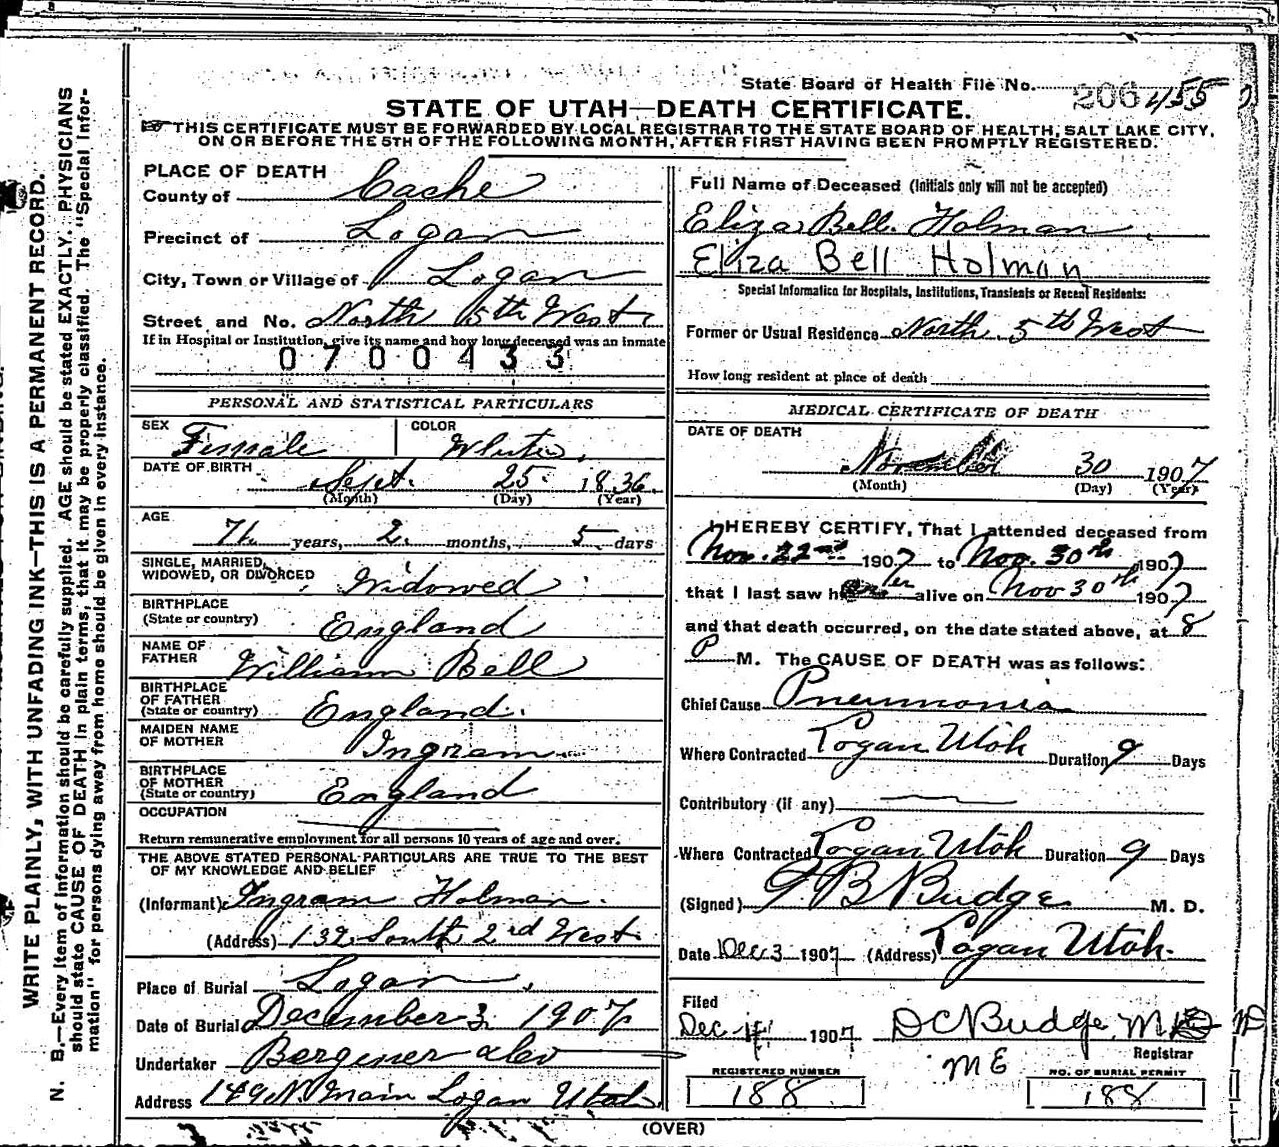 State Board of Health File No. 206 455
STATE OF UTAH—DEATH CERTIFICATE.
THIS CERTIFICATE MUST BE FORWARDED BY LOCAL REGISTRAR TO THE STATE BOARD OF HEALTH, SALT LAKE CITY,
ON OR BEFORE THE 5TH OF THE FOLLOWING MONTH, AFTER FIRST HAVING BEEN PROMPTLY REGISTERED.
WRITE PLAINLY, WITH UNFADING INK—THIS IS A PERMANENT RECORD.
N. B.—Every item of information should be carefully supplied. AGE should be stated EXACTLY. PHYSICIANS
should state CAUSE OF DEATH in plain terms, that it may be properly classified. The "Special Infor-
mation" for persons dying away from home should be given in every instance.
PLACE OF DEATH
County of Cache
Precinct of Logan
City, Town or Village of Logan
Street and No. North 5th West
If in Hospital or Institution, give its name and how long deceased was an inmate
0700433
PERSONAL AND STATISTICAL PARTICULARS
SEX Female COLOR White
DATE OF BIRTH Sept. 25 1836
(Month) (Day) (Year)
AGE 71 years, 2 months, 5 days
SINGLE, MARRIED,
WIDOWED, OR DIVORCED Widowed
BIRTHPLACE
(State or country) England
NAME OF
FATHER William Bell
BIRTHPLACE
OF FATHER
(State or country) England
MAIDEN NAME
OF MOTHER Ingram
BIRTHPLACE
OF MOTHER
(State or country) England
OCCUPATION
Return remunerative employment for all persons 10 years of age and over.
THE ABOVE STATED PERSONAL PARTICULARS ARE TRUE TO THE BEST
OF MY KNOWLEDGE AND BELIEF
(Informant) Ingram Holman
(Address) 132 South 2rd West
Place of Burial Logan
Date of Burial December 3 1907
Undertaker
Address 149 N. Main Logan Utah
Full Name of Deceased (Initials only will not be accepted)
Eliza Bell Holman
Eliza Bell Holman
Special Information for Hospitals, Institutions, Transients or Recent Residents:
Former or Usual Residence North 5th West
How long resident at place of death
MEDICAL CERTIFICATE OF DEATH
DATE OF DEATH
November 30 1907
(Month) (Day) (Year)
I HEREBY CERTIFY, That I attended deceased from
Nov. 22nd 1907 to Nov. 30th 1907
that I last saw her alive on Nov 30th 1907
and that death occurred, on the date stated above, at 8
P M. The CAUSE OF DEATH was as follows:
Chief Cause Pneumonia
Where Contracted Logan Utah Duration 9 Days
Contributory (if any)
Where Contracted Logan Utah Duration 9 Days
(Signed) B Budge M. D.
Date Dec 3 1907 (Address) Logan Utah
Filed
Dec 1907 D C Budge, M D
Registrar
M E
REGISTERED NUMBER
188
NO. OF BURIAL PERMIT
188
(OVER)